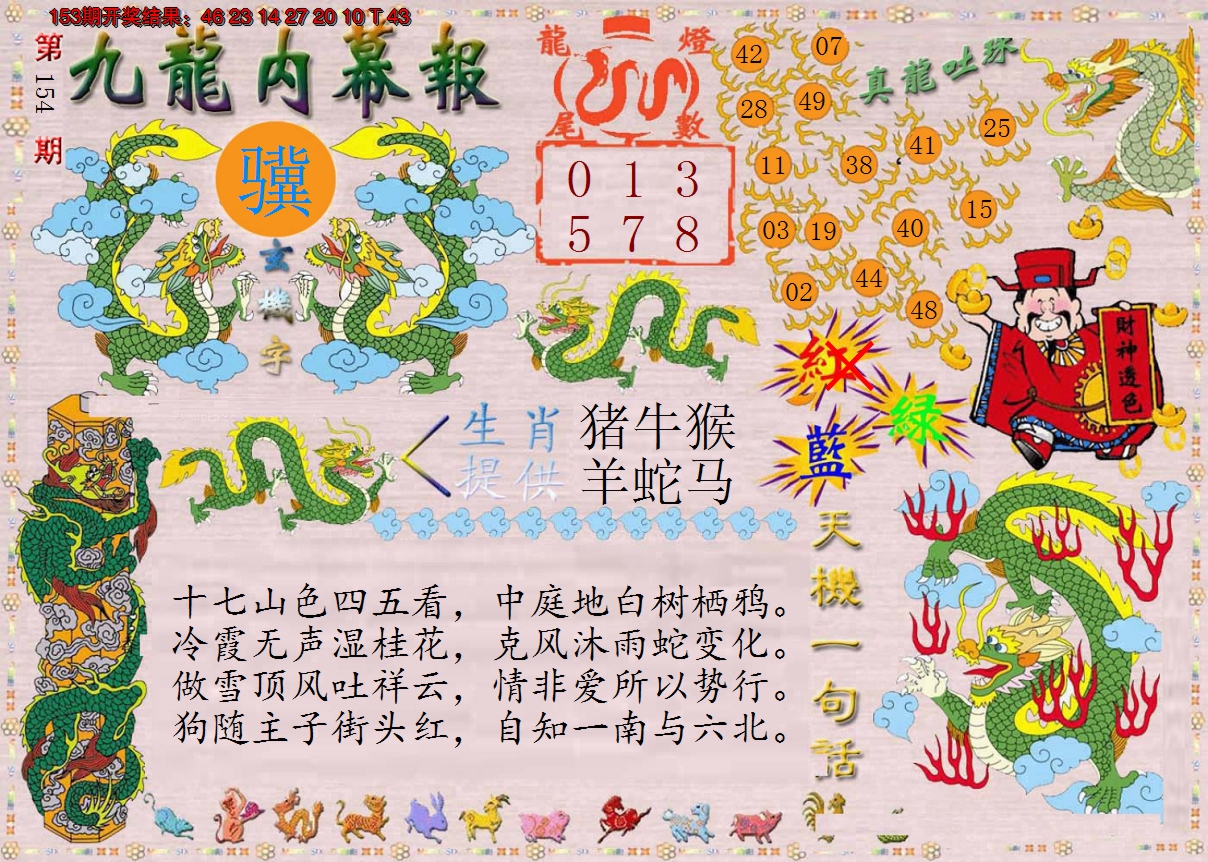 153期开奖结果：46 23 14 27 20 10 T 43
第154期
九龍内幕報
骥
玄機字
龍燈
尾數
0 1 3
5 7 8
真龍吐珠
42 07
28 49
11 38 41 25
03 19 40 15
02 44 48
財神透色
紅
綠
藍
生肖 猪牛猴
提供 羊蛇马
天機一句话
十七山色四五看，中庭地白树栖鸦。
冷霞无声湿桂花，克风沐雨蛇变化。
做雪顶风吐祥云，情非爱所以势行。
狗随主子街头红，自知一南与六北。